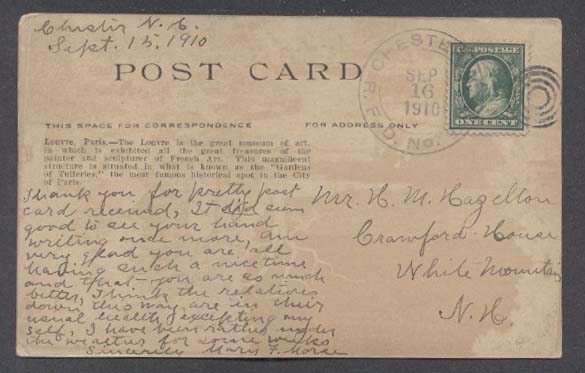 Chester N. H.
Sept. 15, 1910
POST CARD
THIS SPACE FOR CORRESPONDENCE
FOR ADDRESS ONLY
Louvre, Paris.—The Louvre is the great museum of art,
in which is exhibited all the great treasures of the
painter and sculpturer of French Art. This magnificent
structure is situated in what is known as the "Gardens
of Tulleries," the most famous historical spot in the City
of Paris.
Thank you for pretty post
card received, It did seem
good to see your hand
writing once more, am
very glad you are all
having such a nice time
and that you are so much
better, I think the relatives
down this way are in their
usual health, excepting my
self, I have been rather under
the weather for some weeks
Sincerely Mary F. Morse
Mr. H. M. Hazelton
Crawford House
White Mountain
N. H.
CHESTE
SEP
16
1910
No.
U.S. POSTAGE
ONE CENT